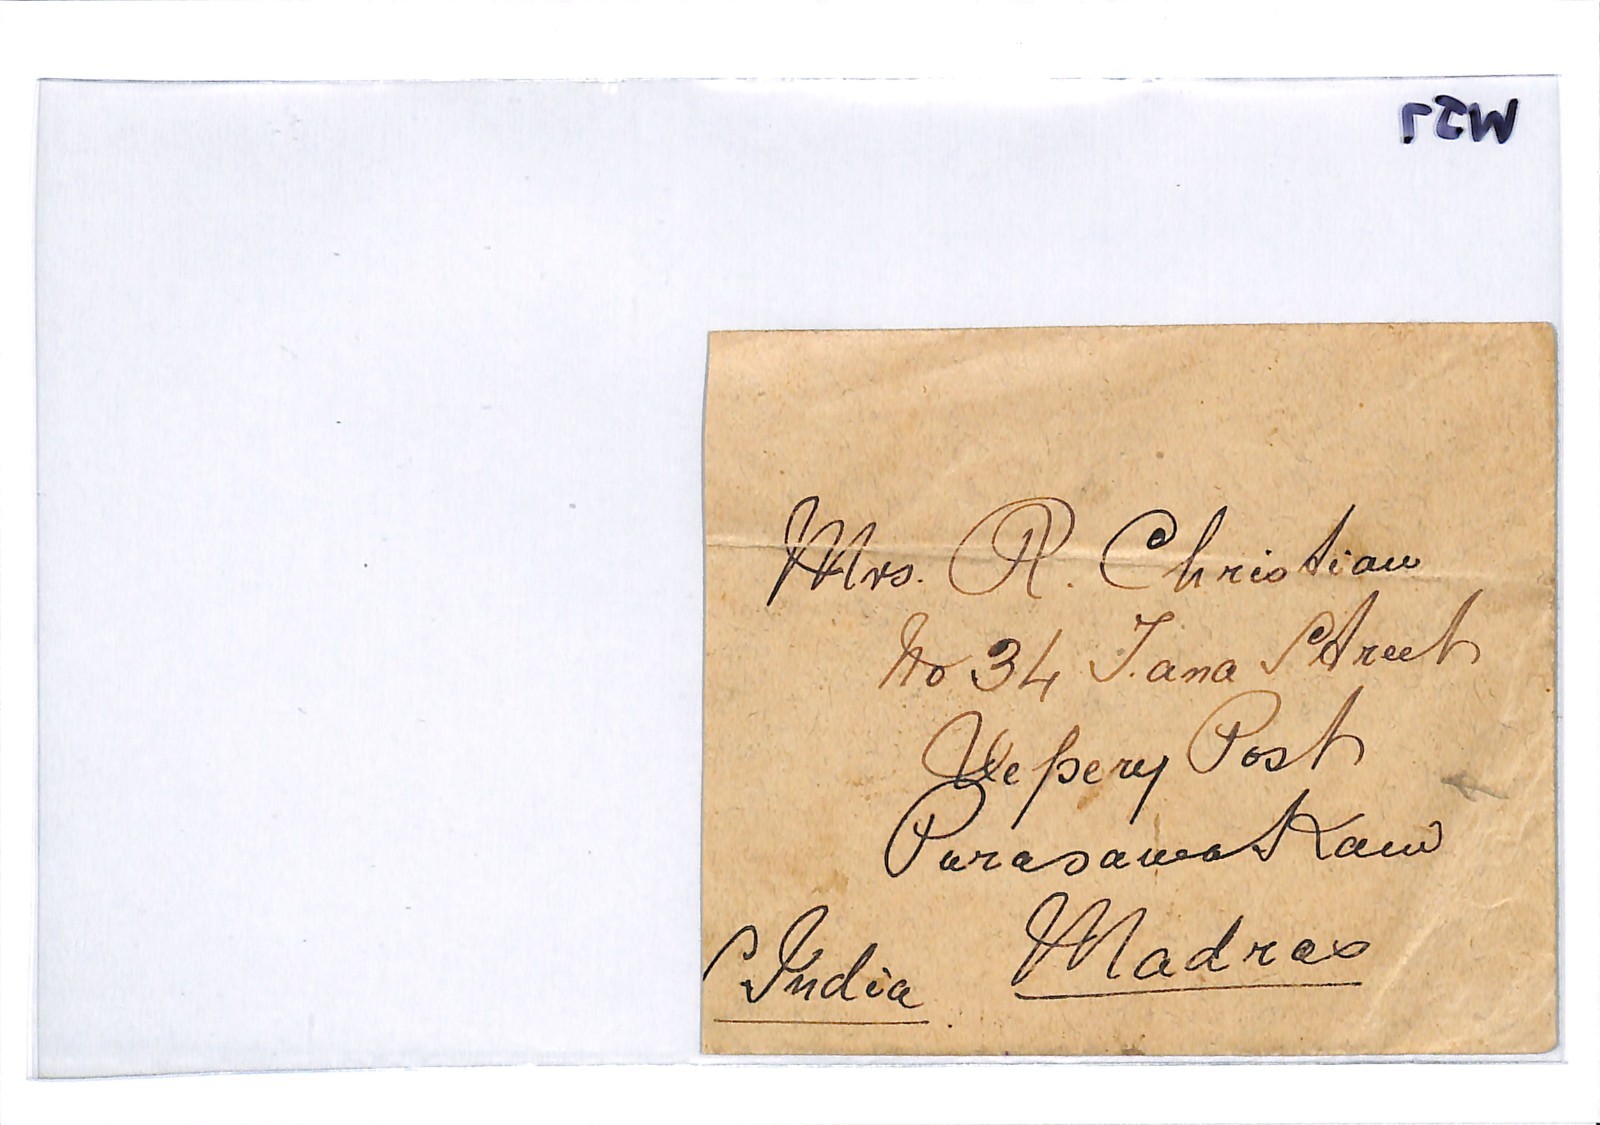 Mrs. R. Christian
No 34 Tana Street
Vepery Post
Purasawakam
Madras
India